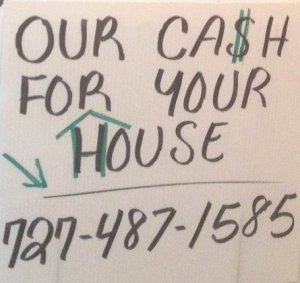 OUR CA$H
FOR YOUR
HOUSE
727-487-1585